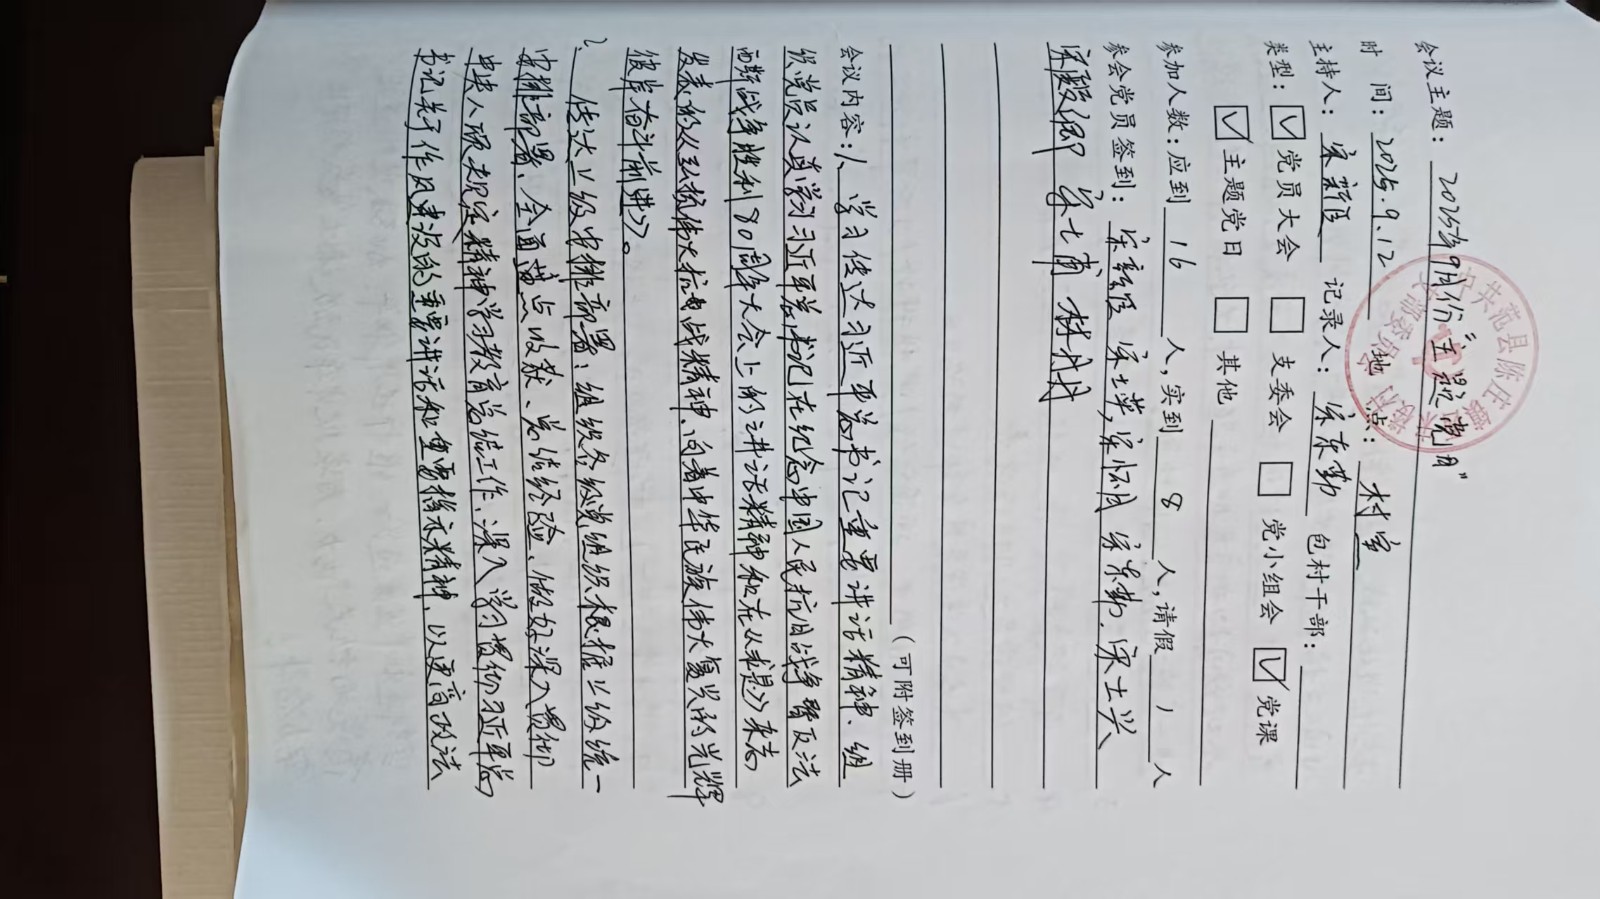 会议主题：2025年9月份“主题党日”
时 间：2025.9.12 地 点：村室
主持人：宋新径 记录人：宋东勤 包村干部：
类型：☑党员大会 □支委会 □党小组会 ☑党课
☑主题党日 □其他
参加人数：应到16人，实到8人，请假1人
参会党员签到：宋新径 宋士苹 宋怀月 宋东勤 宋士兴
宋殿 宋七甫 林
（可附签到册）
会议内容：1、学习传达习近平总书记重要讲话精神、组
织党员认真学习习近平总书记在纪念中国人民抗日战争暨反法
西斯战争胜利80周年大会上的讲话精神和在《求是》杂志
发表的《弘扬伟大抗日战精神、向着中华民族伟大复兴的光辉
彼岸奋斗前进》。
2、传达上级安排部署：组织各级党组织根据上级统一
安排部署、全面盘点收获、总结经验、做好深入贯彻
中央八项规定精神学习教育总结工作、深入学习贯彻习近平总
书记关于作风建设的重要讲话和重要指示精神、以更高政法
中共范县陈庄镇